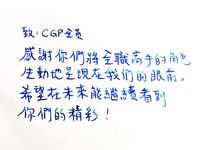 致:CGP全員
感謝你們將全職高手的角色
生動地呈現在我們的眼前。
希望在未來能繼續看到
你們的精彩!